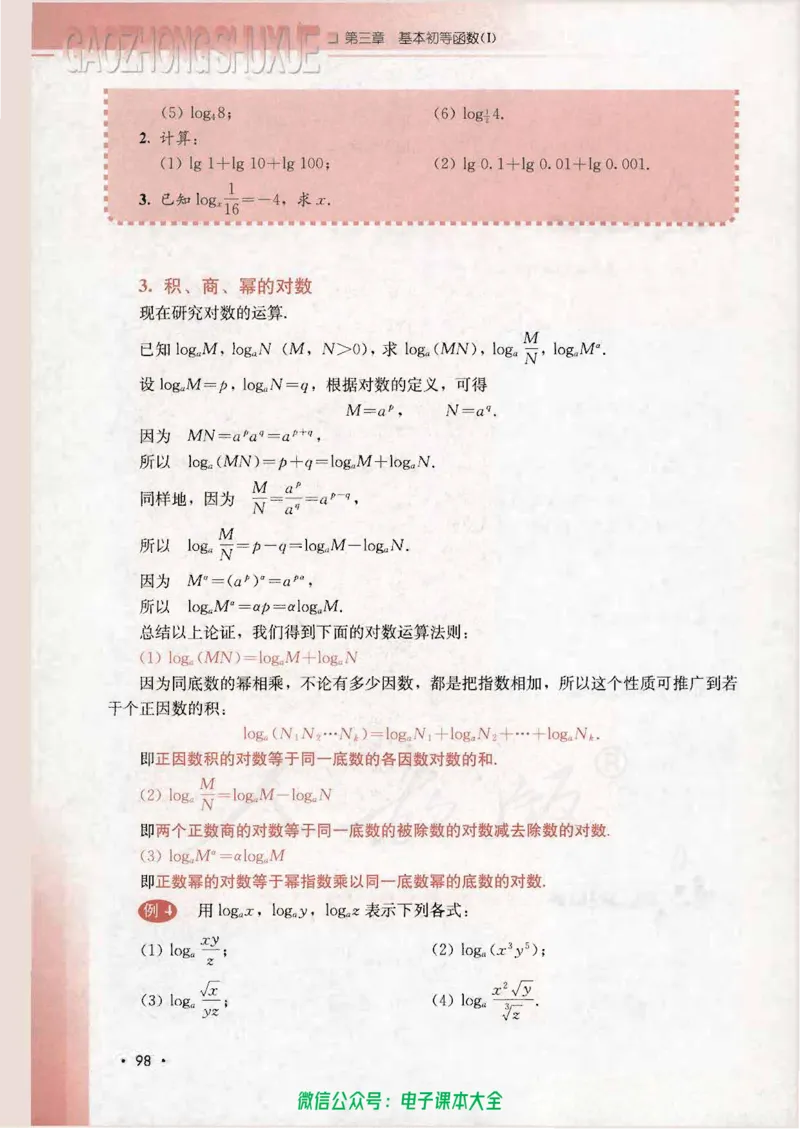 GAOZHONGSHUXUE
第三章 基本初等函数(Ⅰ)
(5) log₄8; (6) log_{1/4}4.
2. 计算:
(1) lg 1+lg 10+lg 100; (2) lg 0.1+lg 0.01+lg 0.001.
3. 已知 logₓ 1/16=-4, 求 x.
3. 积、商、幂的对数
现在研究对数的运算.
已知 logₐM, logₐN (M, N>0), 求 logₐ(MN), logₐ M/N, logₐM^α.
设 logₐM=p, logₐN=q, 根据对数的定义, 可得
M=a^p, N=a^q.
因为 MN=a^p a^q=a^{p+q},
所以 logₐ(MN)=p+q=logₐM+logₐN.
同样地, 因为 M/N=a^p/a^q=a^{p-q},
所以 logₐ M/N=p-q=logₐM-logₐN.
因为 M^α=(a^p)^α=a^{pα},
所以 logₐM^α=αp=αlogₐM.
总结以上论证, 我们得到下面的对数运算法则:
(1) logₐ(MN)=logₐM+logₐN
因为同底数的幂相乘, 不论有多少因数, 都是把指数相加, 所以这个性质可推广到若
干个正因数的积:
logₐ(N₁N₂⋯N_k)=logₐN₁+logₐN₂+⋯+logₐN_k.
即正因数积的对数等于同一底数的各因数对数的和.
(2) logₐ M/N=logₐM-logₐN
即两个正数商的对数等于同一底数的被除数的对数减去除数的对数.
(3) logₐM^α=αlogₐM
即正数幂的对数等于幂指数乘以同一底数幂的底数的对数.
例 4 用 logₐx, logₐy, logₐz 表示下列各式:
(1) logₐ xy/z; (2) logₐ(x³y⁵);
(3) logₐ √x/yz; (4) logₐ x²√y/∛z.
· 98 ·
微信公众号:电子课本大全